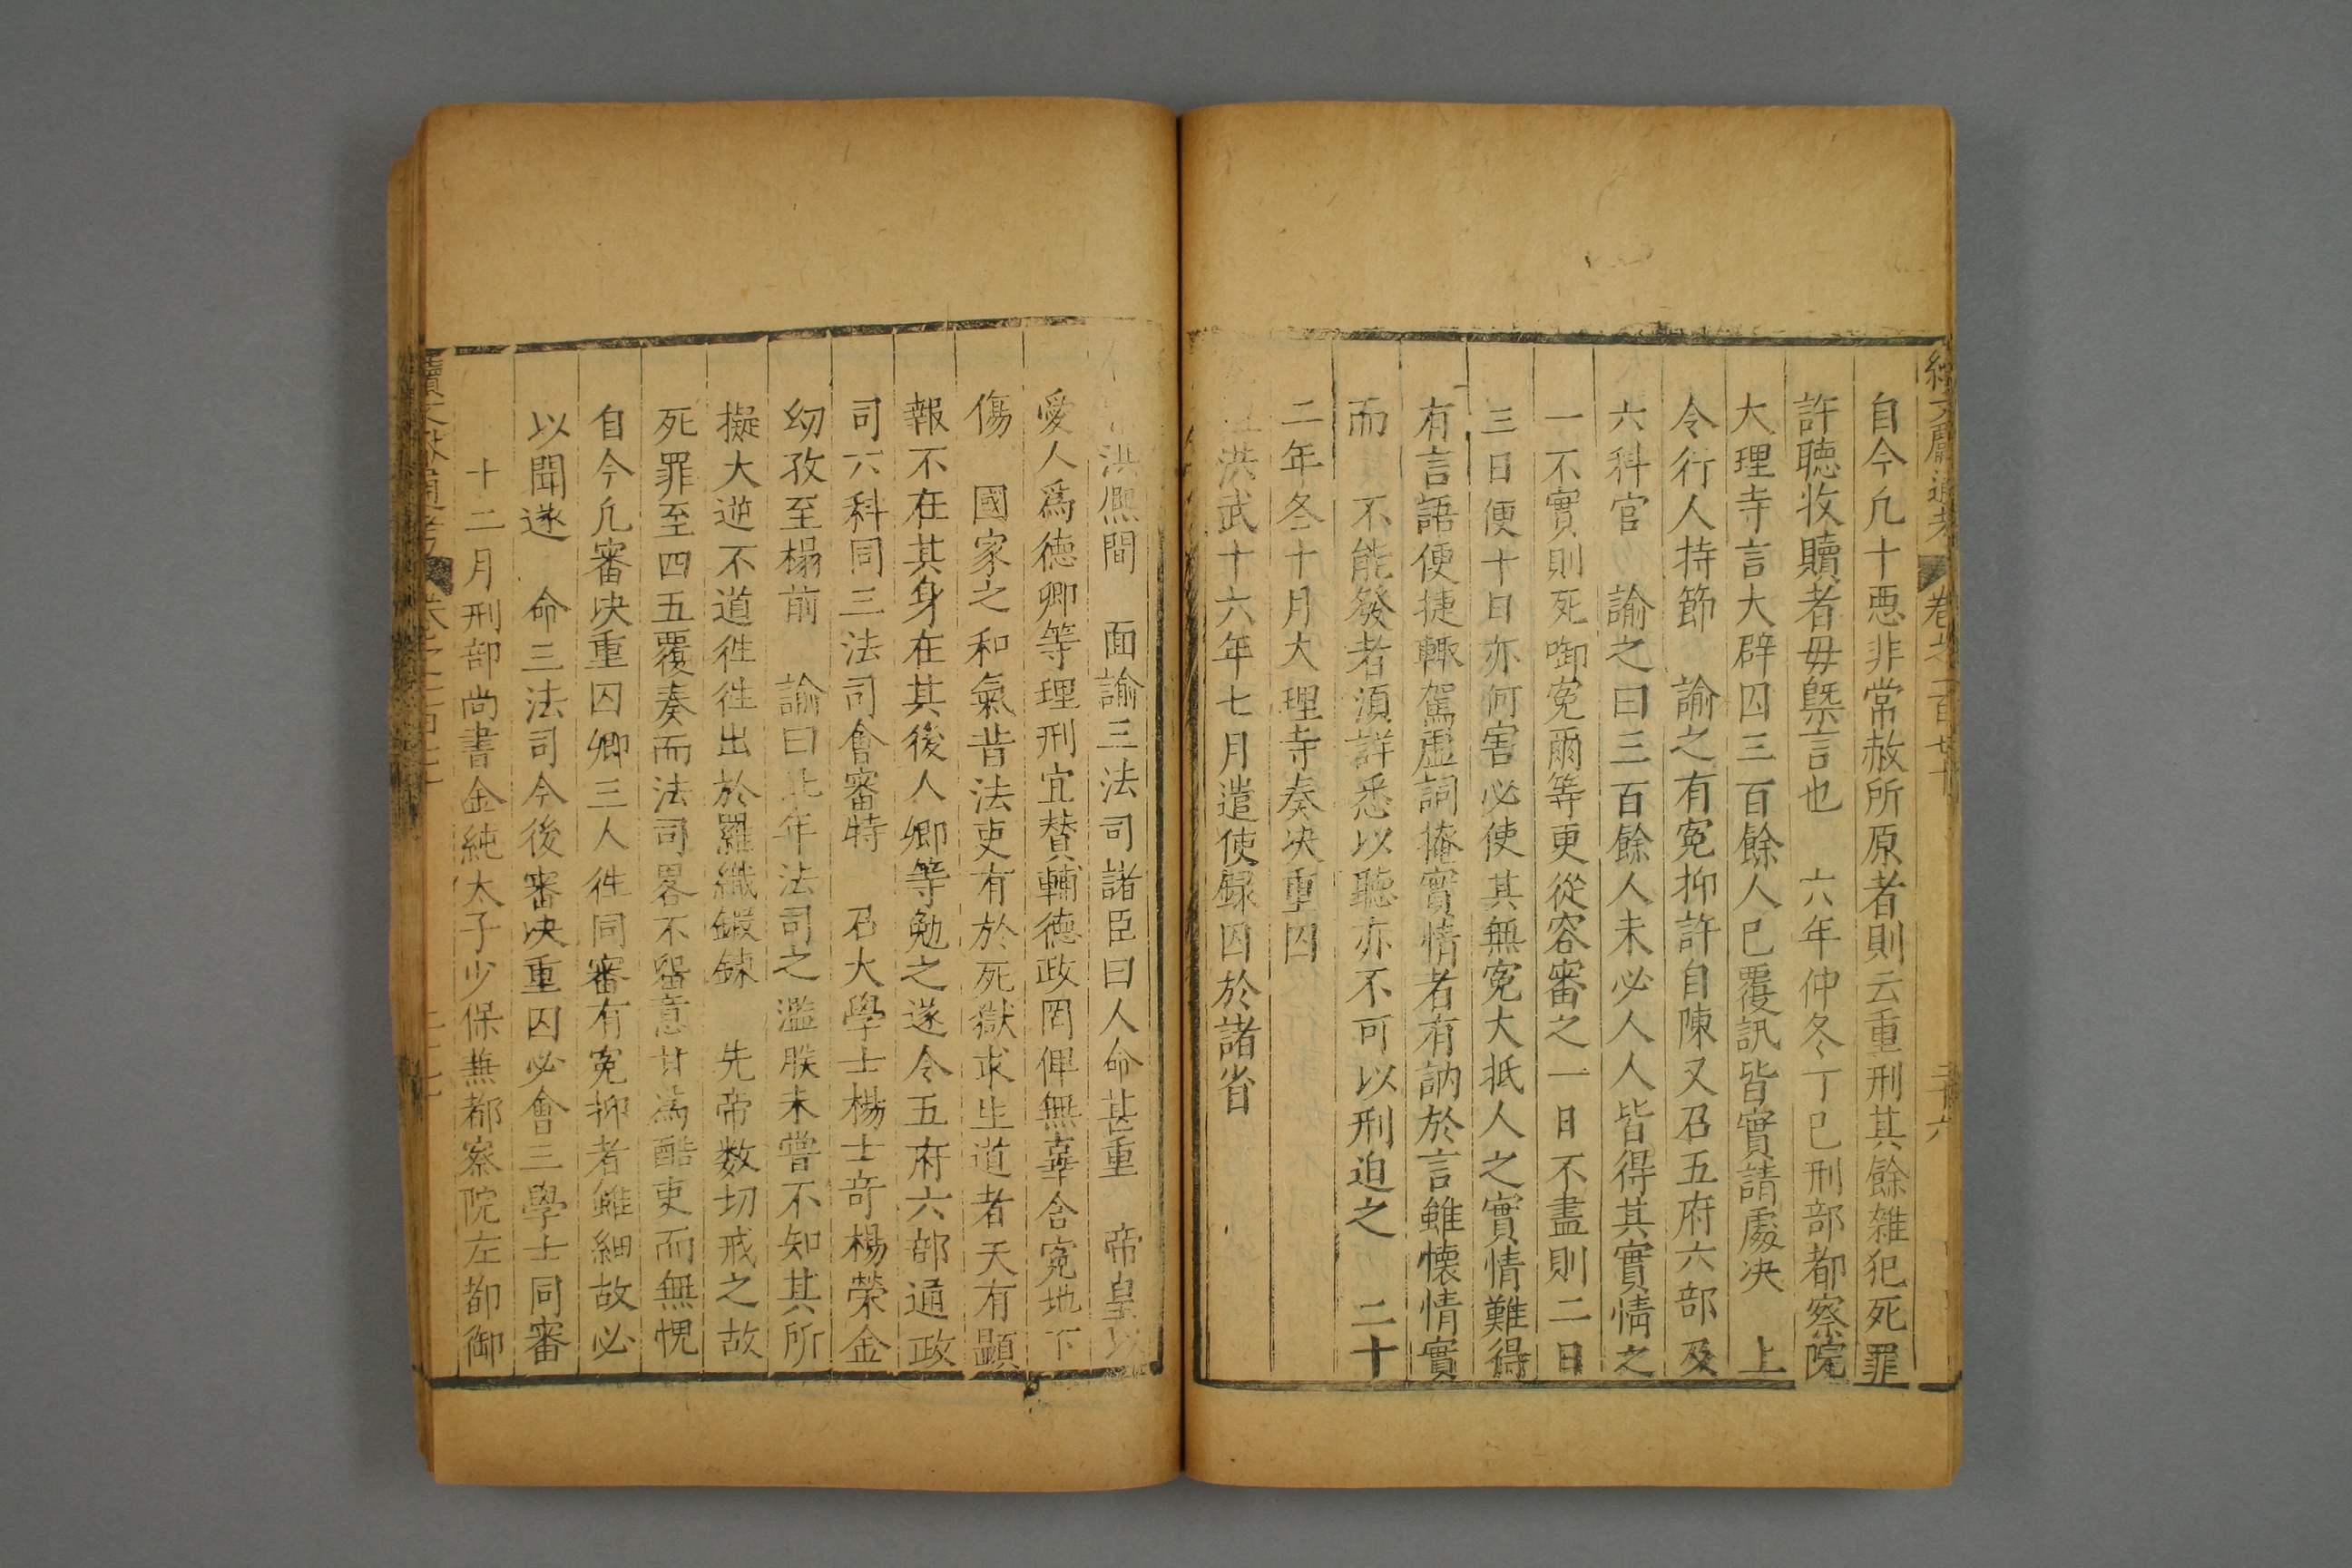 續文獻通考 卷之一百 二十六
自今凡十惡非常赦所原者則云重刑其餘雜犯死罪
許聽收贖者毋槩言也 六年仲冬丁巳刑部都察院
大理寺言大辟囚三百餘人已覆訊皆實請處決 上
令行人持節 諭之有冤抑許自陳又召五府六部及
六科官 諭之曰三百餘人未必人人皆得其實情之
一不實則死啣冤爾等更從容審之一日不盡則二日
三日便十日亦何害必使其無冤大抵人之實情難得
有言語便捷輙駕虛詞掩實情者有訥於言雖懷情實
而 不能發者須詳悉以聽亦不可以刑迫之 二十
二年冬十月大理寺奏决重囚
洪武十六年七月遣使録囚於諸省
洪熈間 面諭三法司諸臣曰人命甚重 帝皇以
愛人爲德卿等理刑宜賛輔德政罔俾無辜含冤地下
傷 國家之和氣昔法吏有於死獄求生道者天有顯
報不在其身在其後人卿等勉之遂令五府六部通政
司六科同三法司會審特 召大學士楊士竒楊榮金
㓜孜至榻前 諭曰比年法司之濫朕未嘗不知其所
擬大逆不道徃徃出於羅織鍜鍊 先帝数切戒之故
死罪至四五覆奏而法司畧不留意甘爲酷吏而無愧
自今凡審决重囚卿三人徃同審有冤抑者雖細故必
以聞遂 命三法司今後審决重囚必會三學士同審
十二月刑部尚書金純太子少保兼都察院左都御
續文獻通考